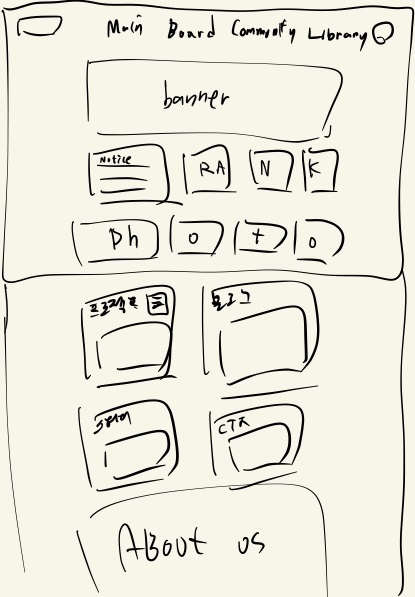 Main Board Community Library
banner
Notice
RA N K
Ph o t o
프로젝트
블로그
CTF
About us